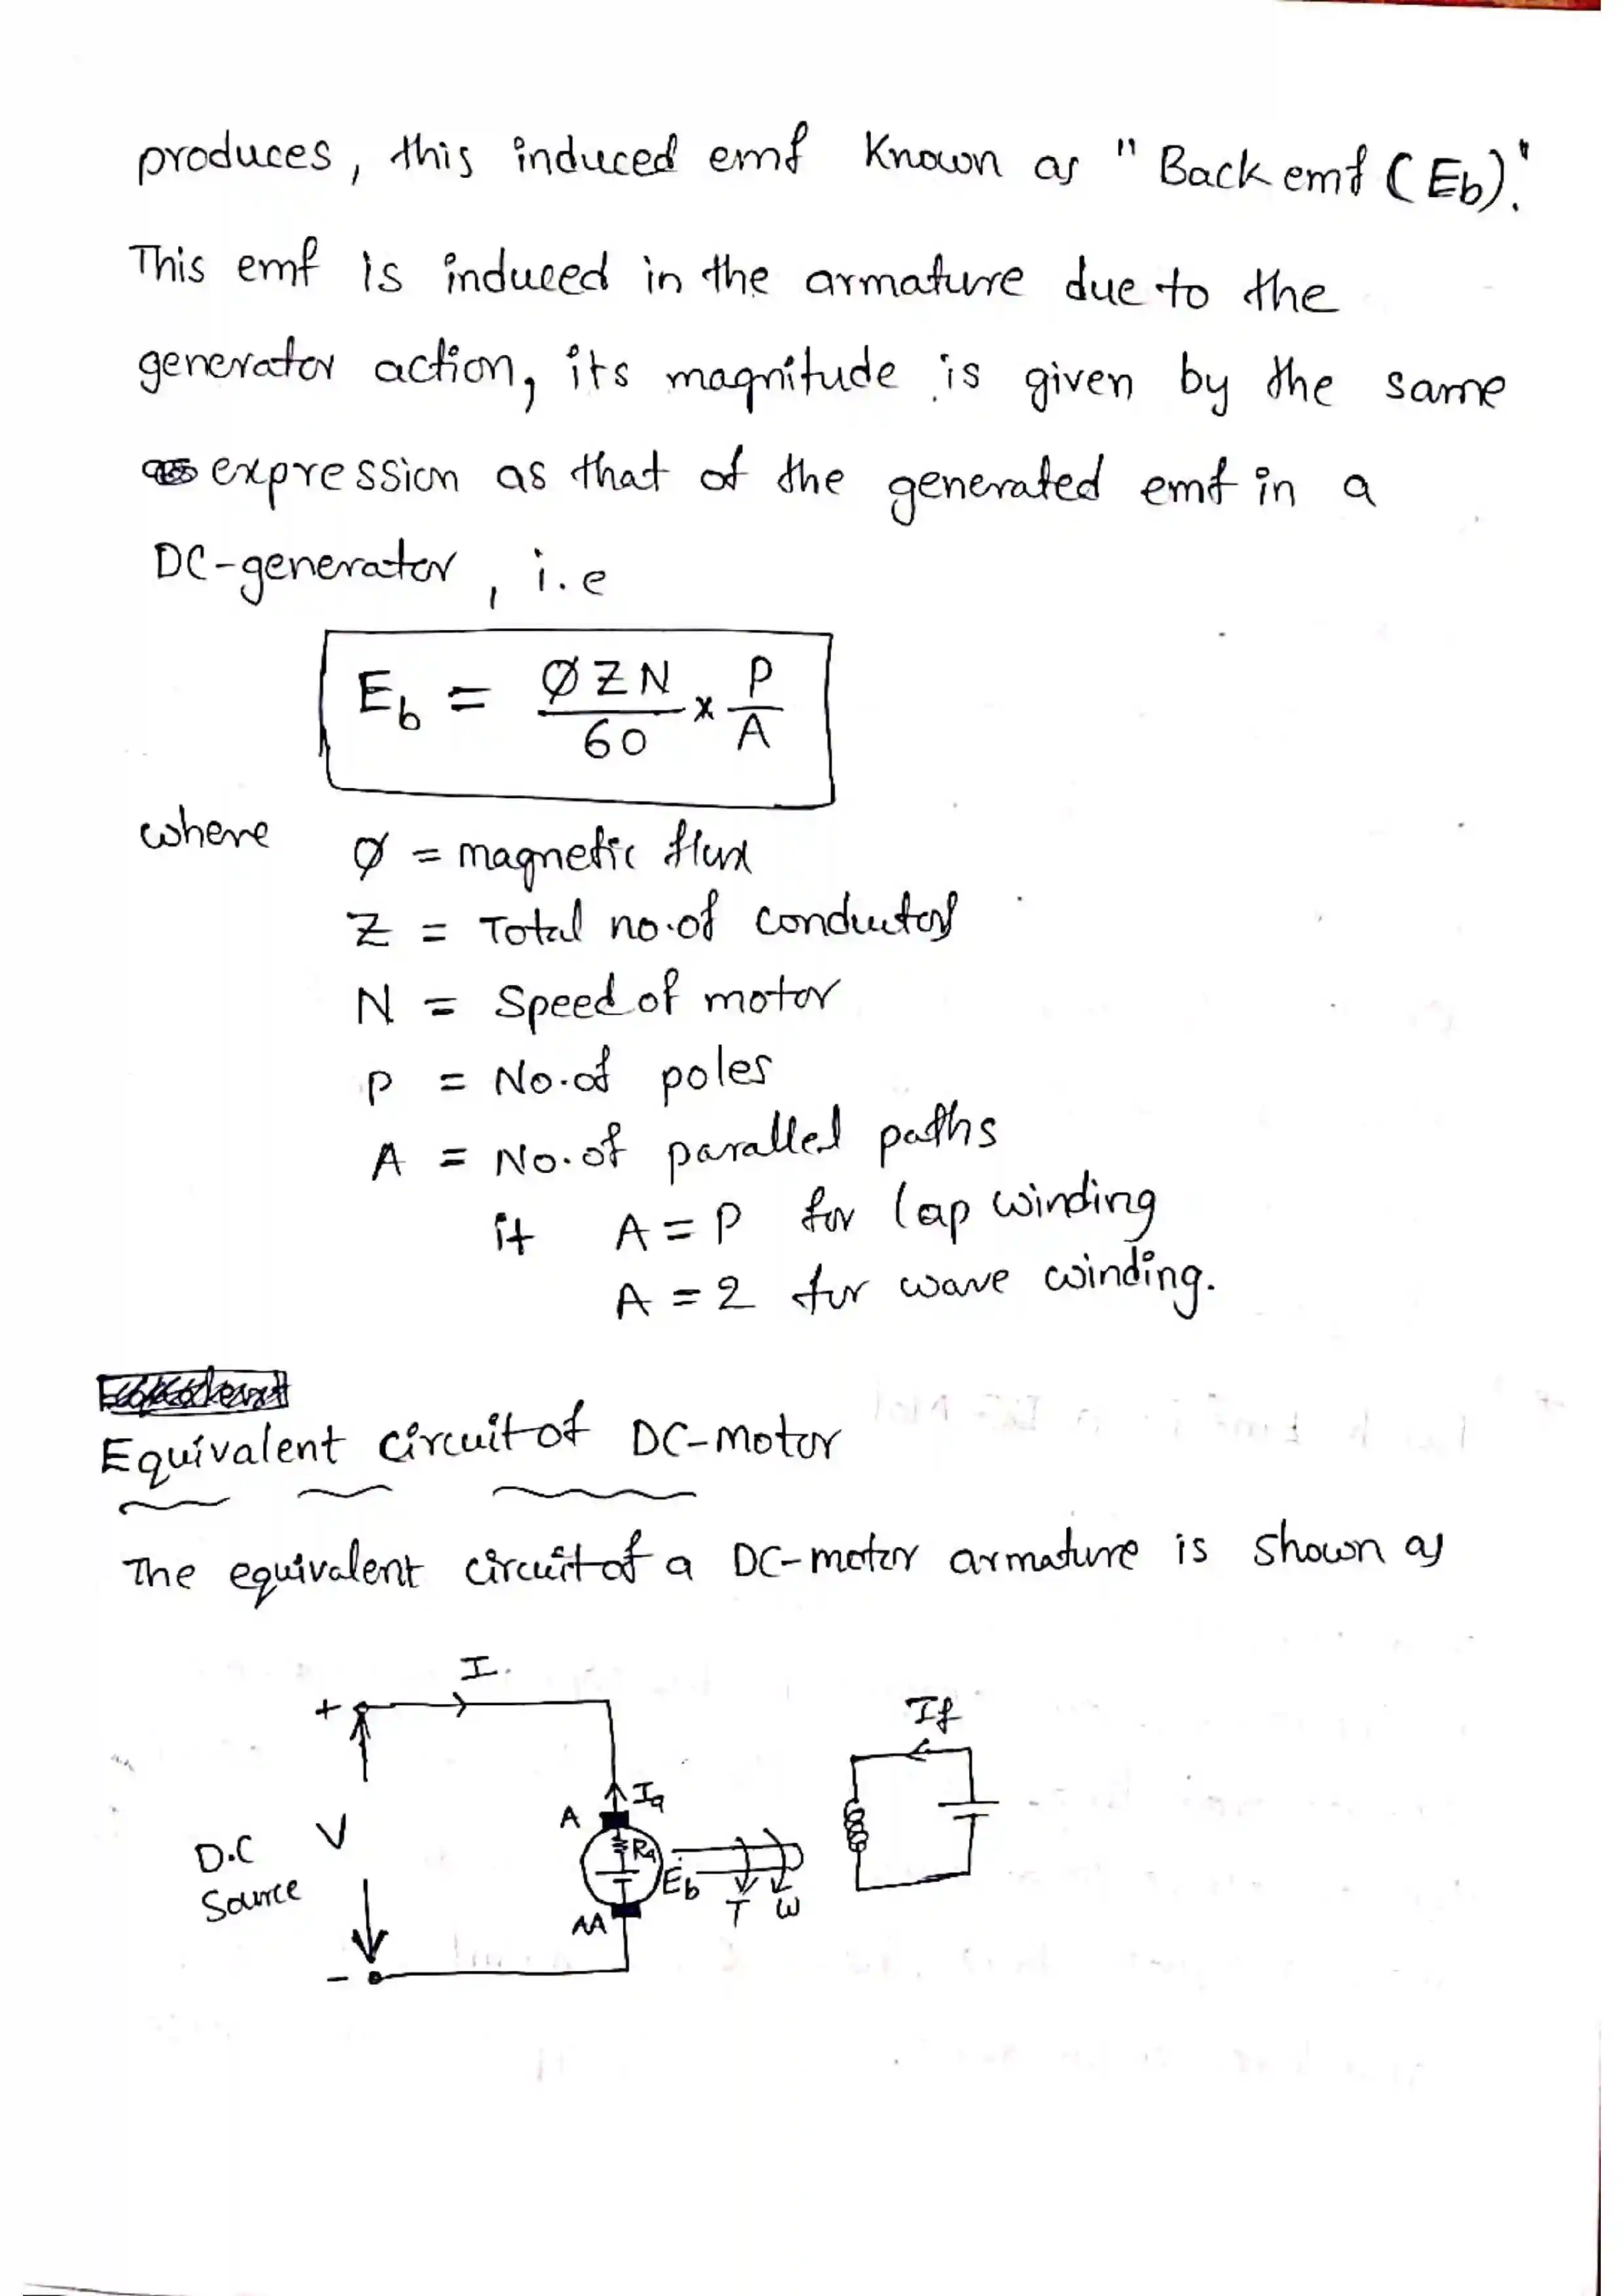 produces, this induced emf Known as "Back emf (Eb)."
This emf is induced in the armature due to the
generator action, its magnitude is given by the same
expression as that of the generated emf in a
DC-generator, i.e
Eb = ØZN/60 × P/A
where Ø = magnetic flux
Z = Total no.of conductors
N = Speed of motor
P = No.of poles
A = No.of parallel paths
if A = P for lap winding
A = 2 for wave winding.
Equivalent circuit of DC-motor
The equivalent circuit of a DC-motor armature is shown as
I.
+
If
Ia
A
V
Ra
D.C
Source
Eb
T ω
AA
-